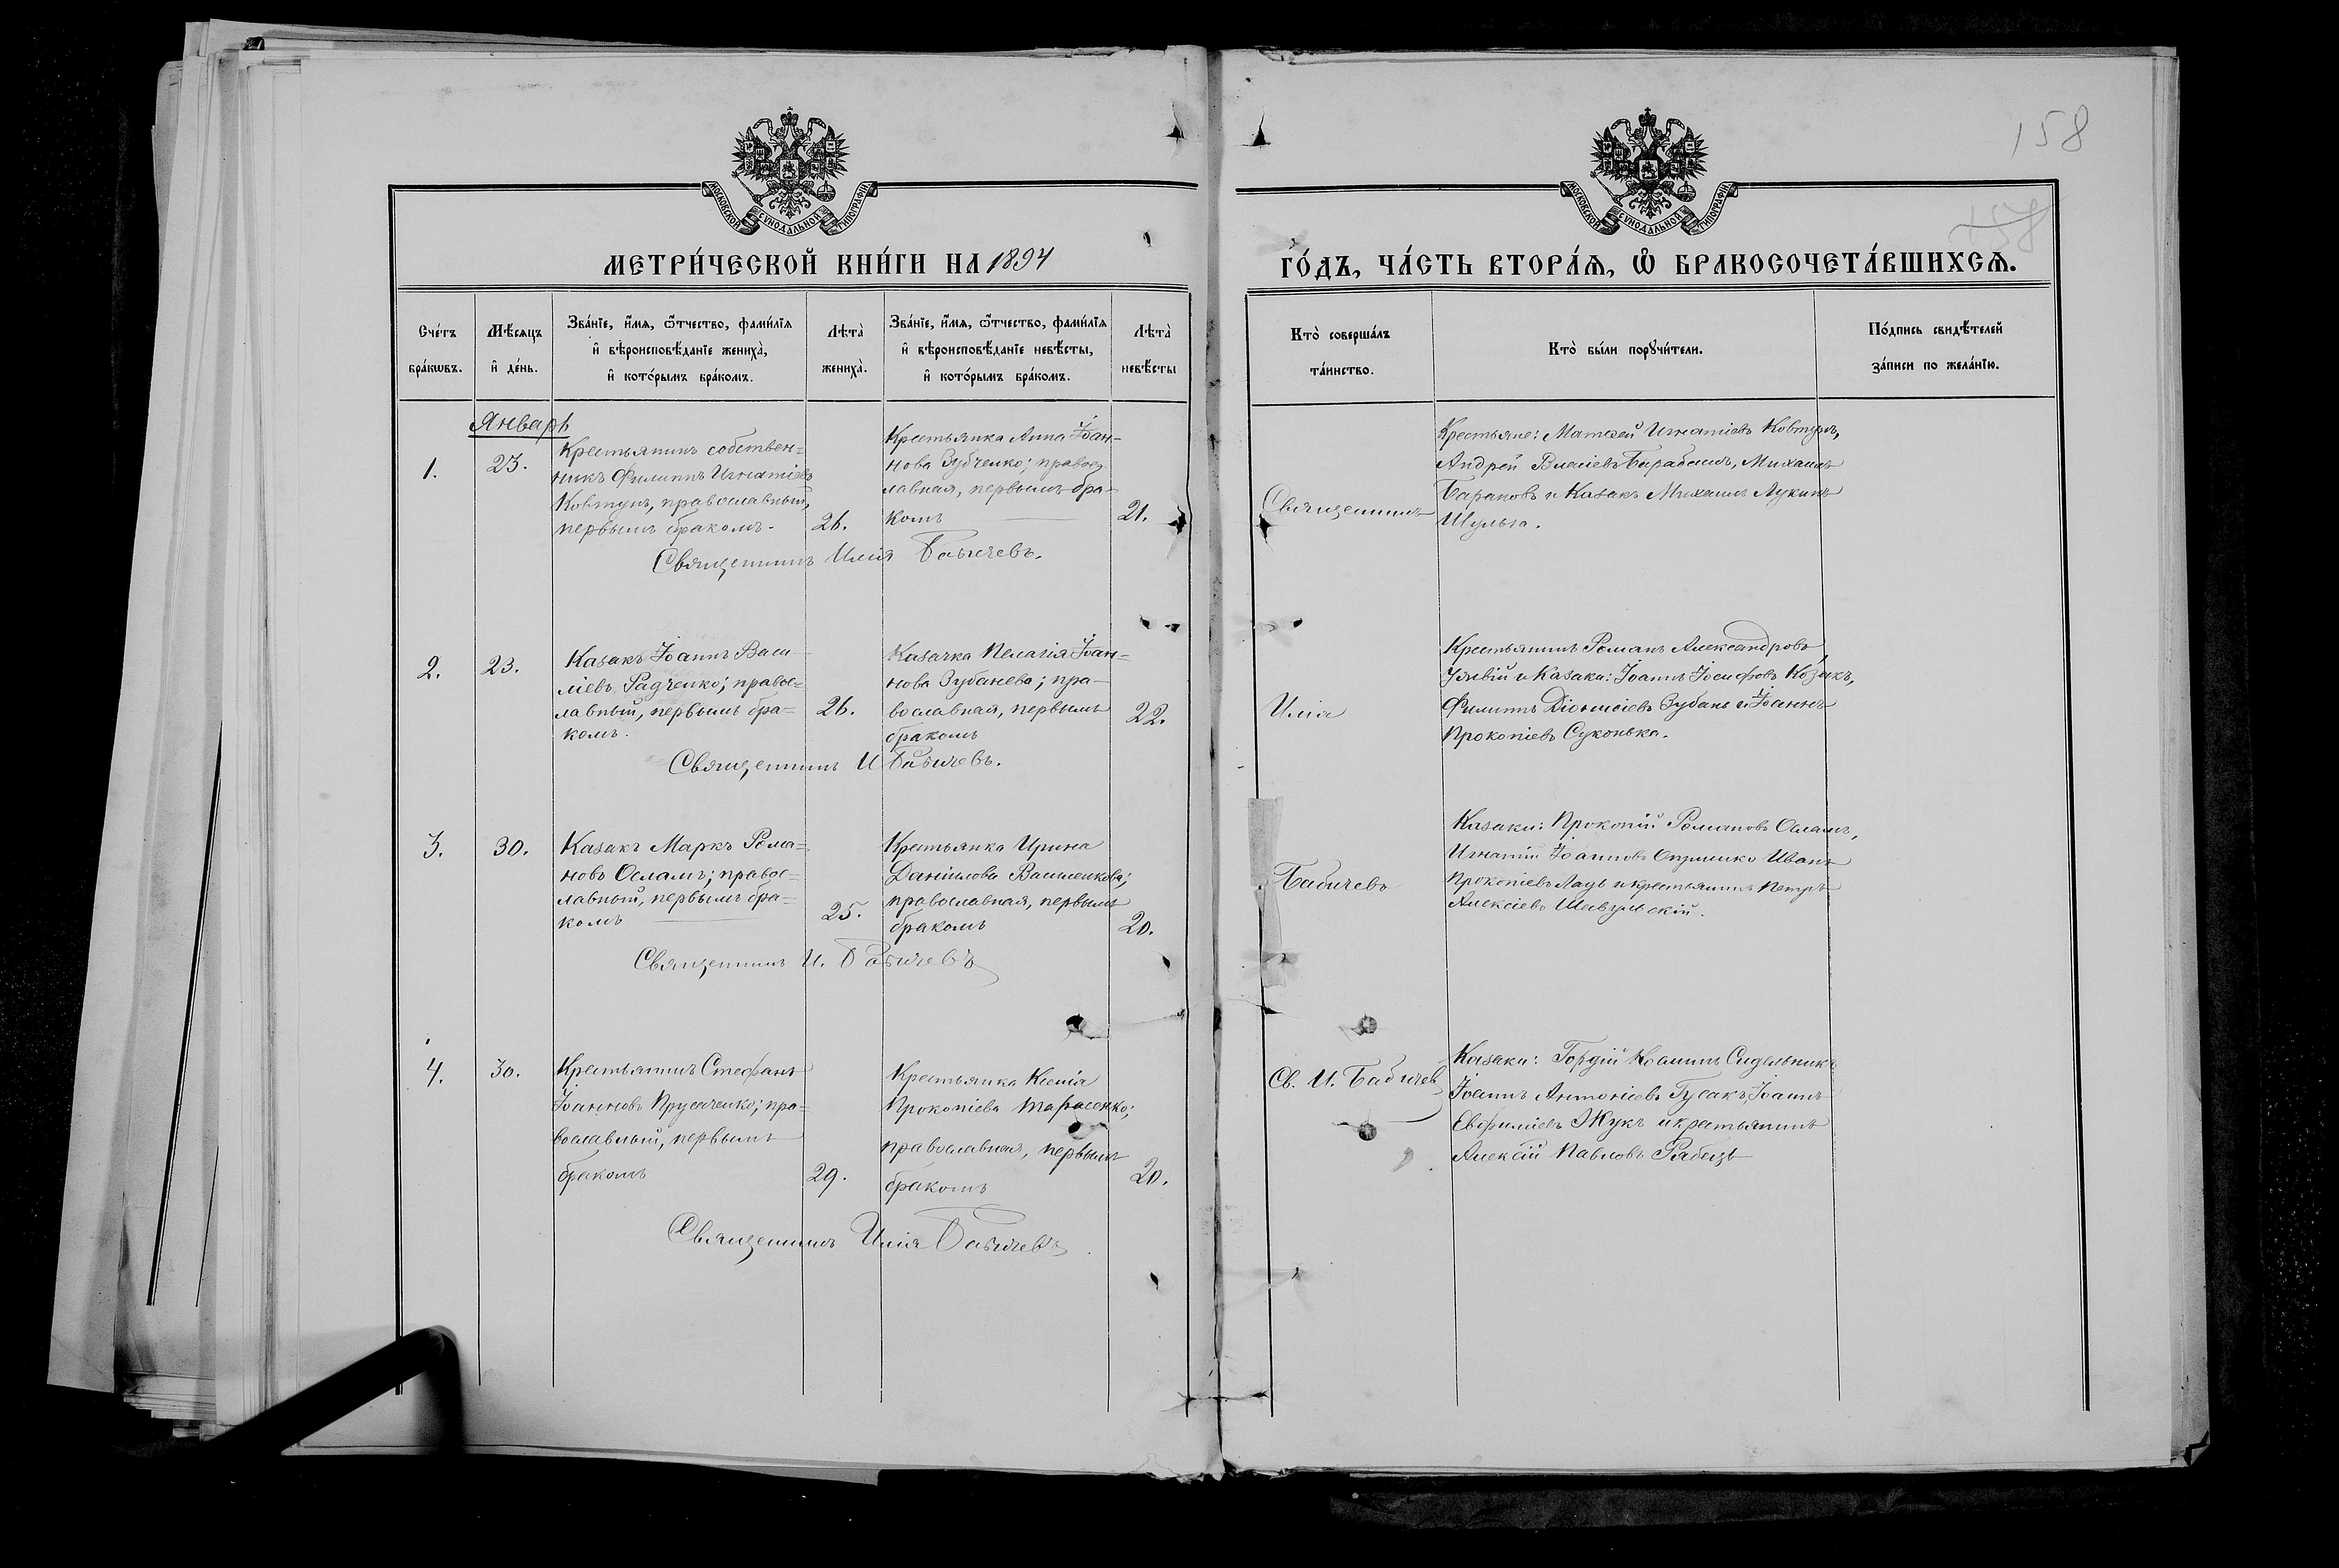 158
МОСКОВСКОЙ СУНОДАЛЬНОЙ ТИПОГРАФІИ
МОСКОВСКОЙ СУНОДАЛЬНОЙ ТИПОГРАФІИ
МЕТРИ́ЧЕСКОЙ КНИ́ГИ НА 1894
ГО́ДЪ, ЧА́СТЬ ВТОРА́Я, Ѡ БРАКОСОЧЕТА́ВШИХСЯ.
Сче́тъ бра́кωвъ.
Мѣ́сяцъ и де́нь.
Зва́нїе, и́мя, ѻ́тчество, фами́лїя
и вѣроисповѣ́данїе жениха̀,
и кото́рымъ бра́комъ.
Лѣта̀ жениха̀.
Зва́нїе, и́мя, ѻ́тчество, фами́лїя
и вѣроисповѣ́данїе невѣ́сты,
и кото́рымъ бра́комъ.
Лѣта̀ невѣ́сты
Кто̀ соверша́лъ
та́инство.
Кто̀ бы́ли порꙋчи́тели.
По́дпись свидѣ́телей
за́писи по жела́нїю.
Январь
1.
23.
Крестьянинъ собствен=
никъ Филиппъ Игнатіевъ
Ковтунъ, православный,
первымъ бракомъ.
26.
Крестьянка Анна Іоан-
нова Зубченко; правос
лавная, первымъ бра-
комъ
21.
Священникъ Илія Бабичевъ.
Священникъ
Крестьяне: Матвей Игнатіевъ Ковтунъ,
Андрей Власіевъ Барабашъ, Михаилъ
Барановъ и Казакъ Михаилъ Лукинъ
Шульга.
2.
23.
Казакъ Іоаннъ Васи-
ліевъ Радченко; правос=
лавный, первымъ бра=
комъ.
26.
Казачка Пелагія Іоан=
нова Зубанева; пра-
вославная, первымъ
бракомъ
22.
Священникъ И Бабичевъ.
Илія
Крестьянинъ Романъ Александровъ
и Казаки: Іоаннъ Іосифовъ Козакъ,
Филиппъ Діонисіевъ Зубань и Іоаннъ
Прокопіевъ Суконька.
3.
30.
Казакъ Маркъ Рома=
новъ Осламъ; правос=
лавный, первымъ бра=
комъ
25.
Крестьянка Ирина
Даніилова Вашенкова;
православная, первымъ
бракомъ
20.
Священникъ И. Бабичевъ
Бабичевъ
Казаки: Прокопій Романовъ Осламъ,
Игнатій Іоанновъ Иванъ
Прокопіевъ Ладъ и крестьянинъ Петръ
Алексіевъ
4.
30.
Крестьянинъ Стефанъ
Іоанновъ Прусаченко; пра=
вославный, первымъ
бракомъ
29.
Крестьянка Ксенія
Прокопіева Тарасенко;
православная, первымъ
бракомъ
20.
Священникъ Илія Бабичевъ
Св. И. Бабичев
Казаки: Гордій Сидельникъ
Іоаннъ Антоніевъ Гусакъ, Іоаннъ
Евфиміевъ Жукъ и крестьянинъ
Алексій Павловъ Рябецъ